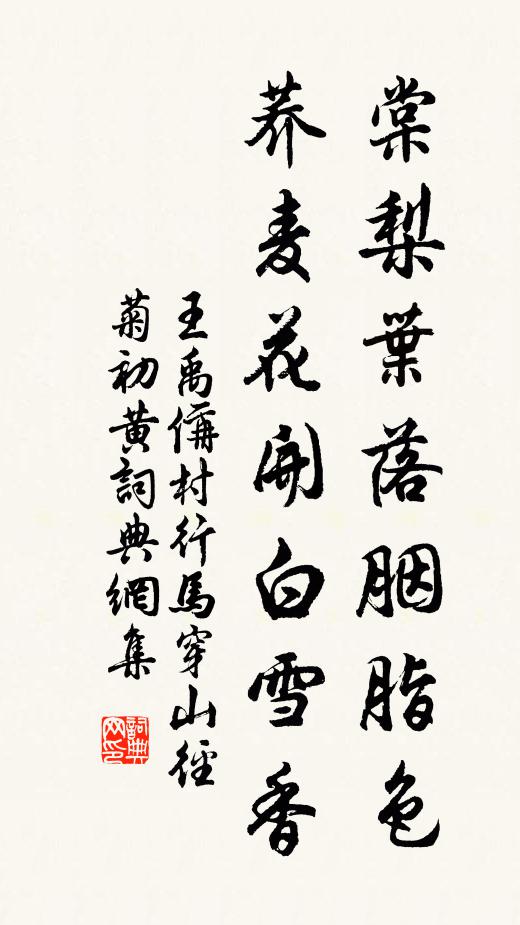 棠梨葉落胭脂色
荞麦花開白雪香
王禹偁村行馬穿山徑
菊初黃詞典網集
詞典
网印